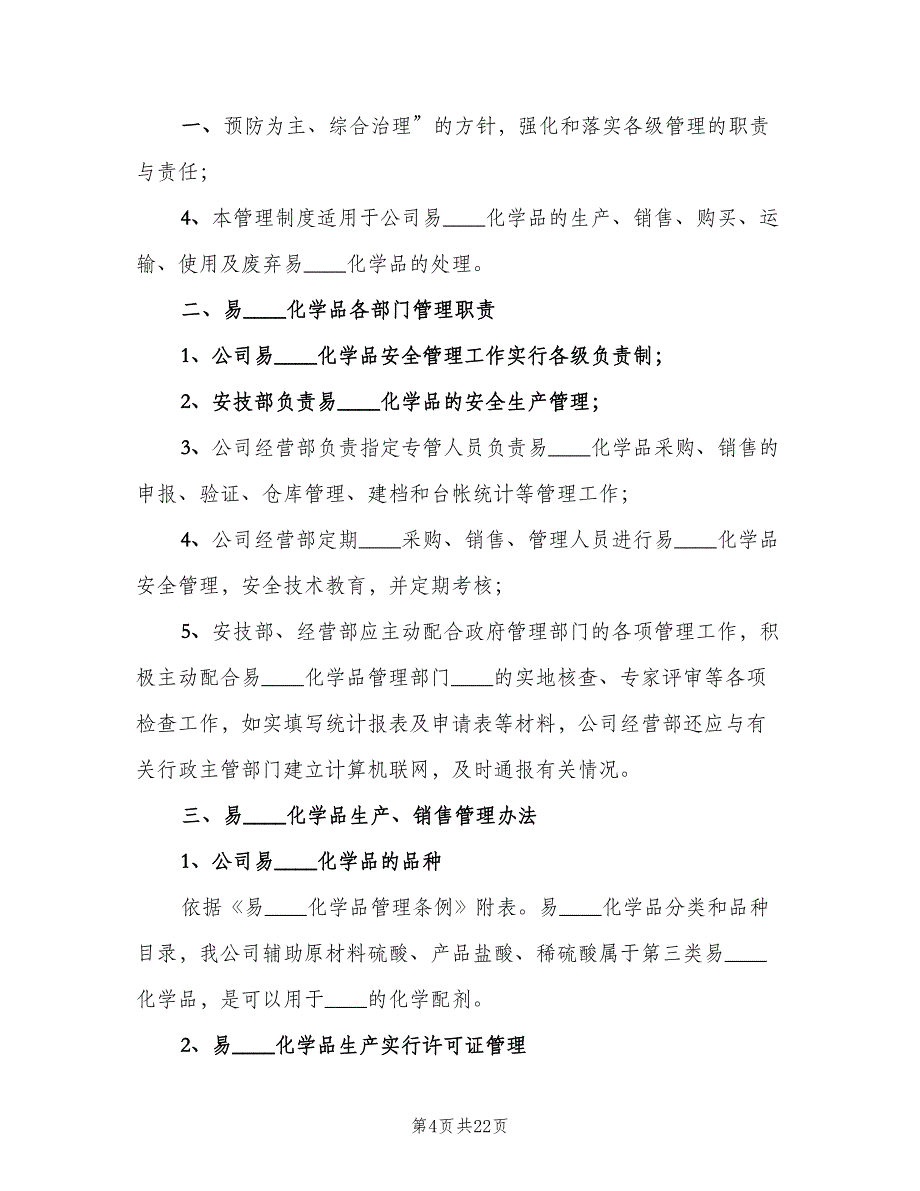 一、预防为主、综合治理”的方针，强化和落实各级管理的职责
与责任；
4、本管理制度适用于公司易____化学品的生产、销售、购买、运
输、使用及废弃易____化学品的处理。
二、易____化学品各部门管理职责
1、公司易____化学品安全管理工作实行各级负责制；
2、安技部负责易____化学品的安全生产管理；
3、公司经营部负责指定专管人员负责易____化学品采购、销售的
申报、验证、仓库管理、建档和台帐统计等管理工作；
4、公司经营部定期____采购、销售、管理人员进行易____化学品
安全管理，安全技术教育，并定期考核；
5、安技部、经营部应主动配合政府管理部门的各项管理工作，积
极主动配合易____化学品管理部门____的实地核查、专家评审等各项
检查工作，如实填写统计报表及申请表等材料，公司经营部还应与有
关行政主管部门建立计算机联网，及时通报有关情况。
三、易____化学品生产、销售管理办法
1、公司易____化学品的品种
依据《易____化学品管理条例》附表。易____化学品分类和品种
目录，我公司辅助原材料硫酸、产品盐酸、稀硫酸属于第三类易____
化学品，是可以用于____的化学配剂。
2、易____化学品生产实行许可证管理
第4页共22页